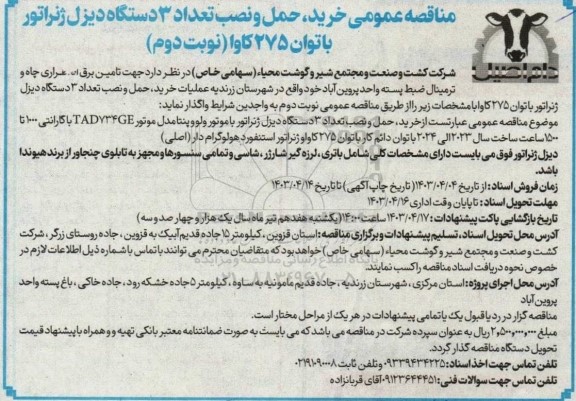 مناقصه عمومی خرید، حمل و نصب تعداد ۳ دستگاه دیزل ژنراتور
با توان ۲۷۵ کاوا (نوبت دوم)
دام اصیل
شرکت کشت و صنعت و مجتمع شیر و گوشت محیاء (سهامی خاص) در نظر دارد جهت تامین برق اضطراری چاه و
ترمینال ضبط پسته واحد پروین آباد خود واقع در شهرستان زرندیه عملیات خرید، حمل و نصب تعداد ۳ دستگاه دیزل
ژنراتور با توان ۲۷۵ کاوا با مشخصات زیر را از طریق مناقصه عمومی نوبت دوم به واجدین شرایط واگذار نماید:
موضوع مناقصه عمومی عبارتست از خرید، حمل و نصب تعداد ۳ دستگاه دیزل ژنراتور با موتور ولوو پنتا مدل موتور TAD734GE با گارانتی ۱۰۰۰ تا
۱۵۰۰ ساعت ساخت سال ۲۰۲۳ الی ۲۰۲۴ با توان دائم کار با توان ۲۷۵ کاوا و ژنراتور استنفورد هولوگرام دار (اصلی)
دیزل ژنراتور فوق می بایست دارای مشخصات کلی شامل باتری، لرزه گیر شارژر، شاسی و تمامی سنسورها و مجهز به تابلوی چنجاور از برند هیوندا
باشد.
زمان فروش اسناد: از تاریخ ۱۴۰۳/۰۴/۰۴ (تاریخ چاپ آگهی) تا تاریخ ۱۴۰۳/۰۴/۱۴
مهلت تحویل اسناد: تا پایان وقت اداری ۱۴۰۳/۰۴/۱۶
تاریخ بازگشایی پاکت پیشنهادات: ۱۴۰۳/۰۴/۱۷ ساعت ۱۴:۰۰ (یکشنبه هفدهم تیر ماه سال یک هزار و چهار صد و سه)
آدرس محل تحویل اسناد، تسلیم پیشنهادات و برگزاری مناقصه: استان قزوین، کیلومتر ۱۵ جاده قدیم آبیک به قزوین، جاده روستای زرگر، شرکت
کشت و صنعت و مجتمع شیر و گوشت محیاء (سهامی خاص) خواهد بود که متقاضیان محترم می توانند با تماس با شماره ذیل اطلاعات لازم در
خصوص نحوه دریافت اسناد مناقصه را کسب نمایند.
آدرس محل اجرای پروژه: استان مرکزی، شهرستان زرندیه، جاده قدیم مامونیه به ساوه، کیلومتر ۵ جاده خشکه رود، جاده خاکی، باغ پسته واحد
پروین آباد
مناقصه گزار در رد یا قبول یک یا تمامی پیشنهادات در هر یک از مراحل مختار است.
مبلغ ۲,۵۰۰,۰۰۰,۰۰۰ ریال به عنوان سپرده شرکت در مناقصه می باشد که می بایست به صورت ضمانتنامه معتبر بانکی تهیه و همراه با پیشنهاد قیمت
تحویل دستگاه مناقصه گذار گردد.
تلفن تماس جهت اخذ اسناد: ۰۹۳۳۹۴۳۴۲۲۵ و تلفن ثابت ۰۲۱۹۱۰۹۰۰۰۸
تلفن تماس جهت سوالات فنی: ۰۹۱۲۳۶۴۴۴۵۱ آقای قربانزاده